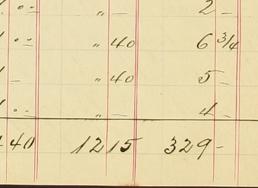 " — 2 —
" 40 6 3/4
" 40 5 —
" — 4 —
40 12 15 329 —